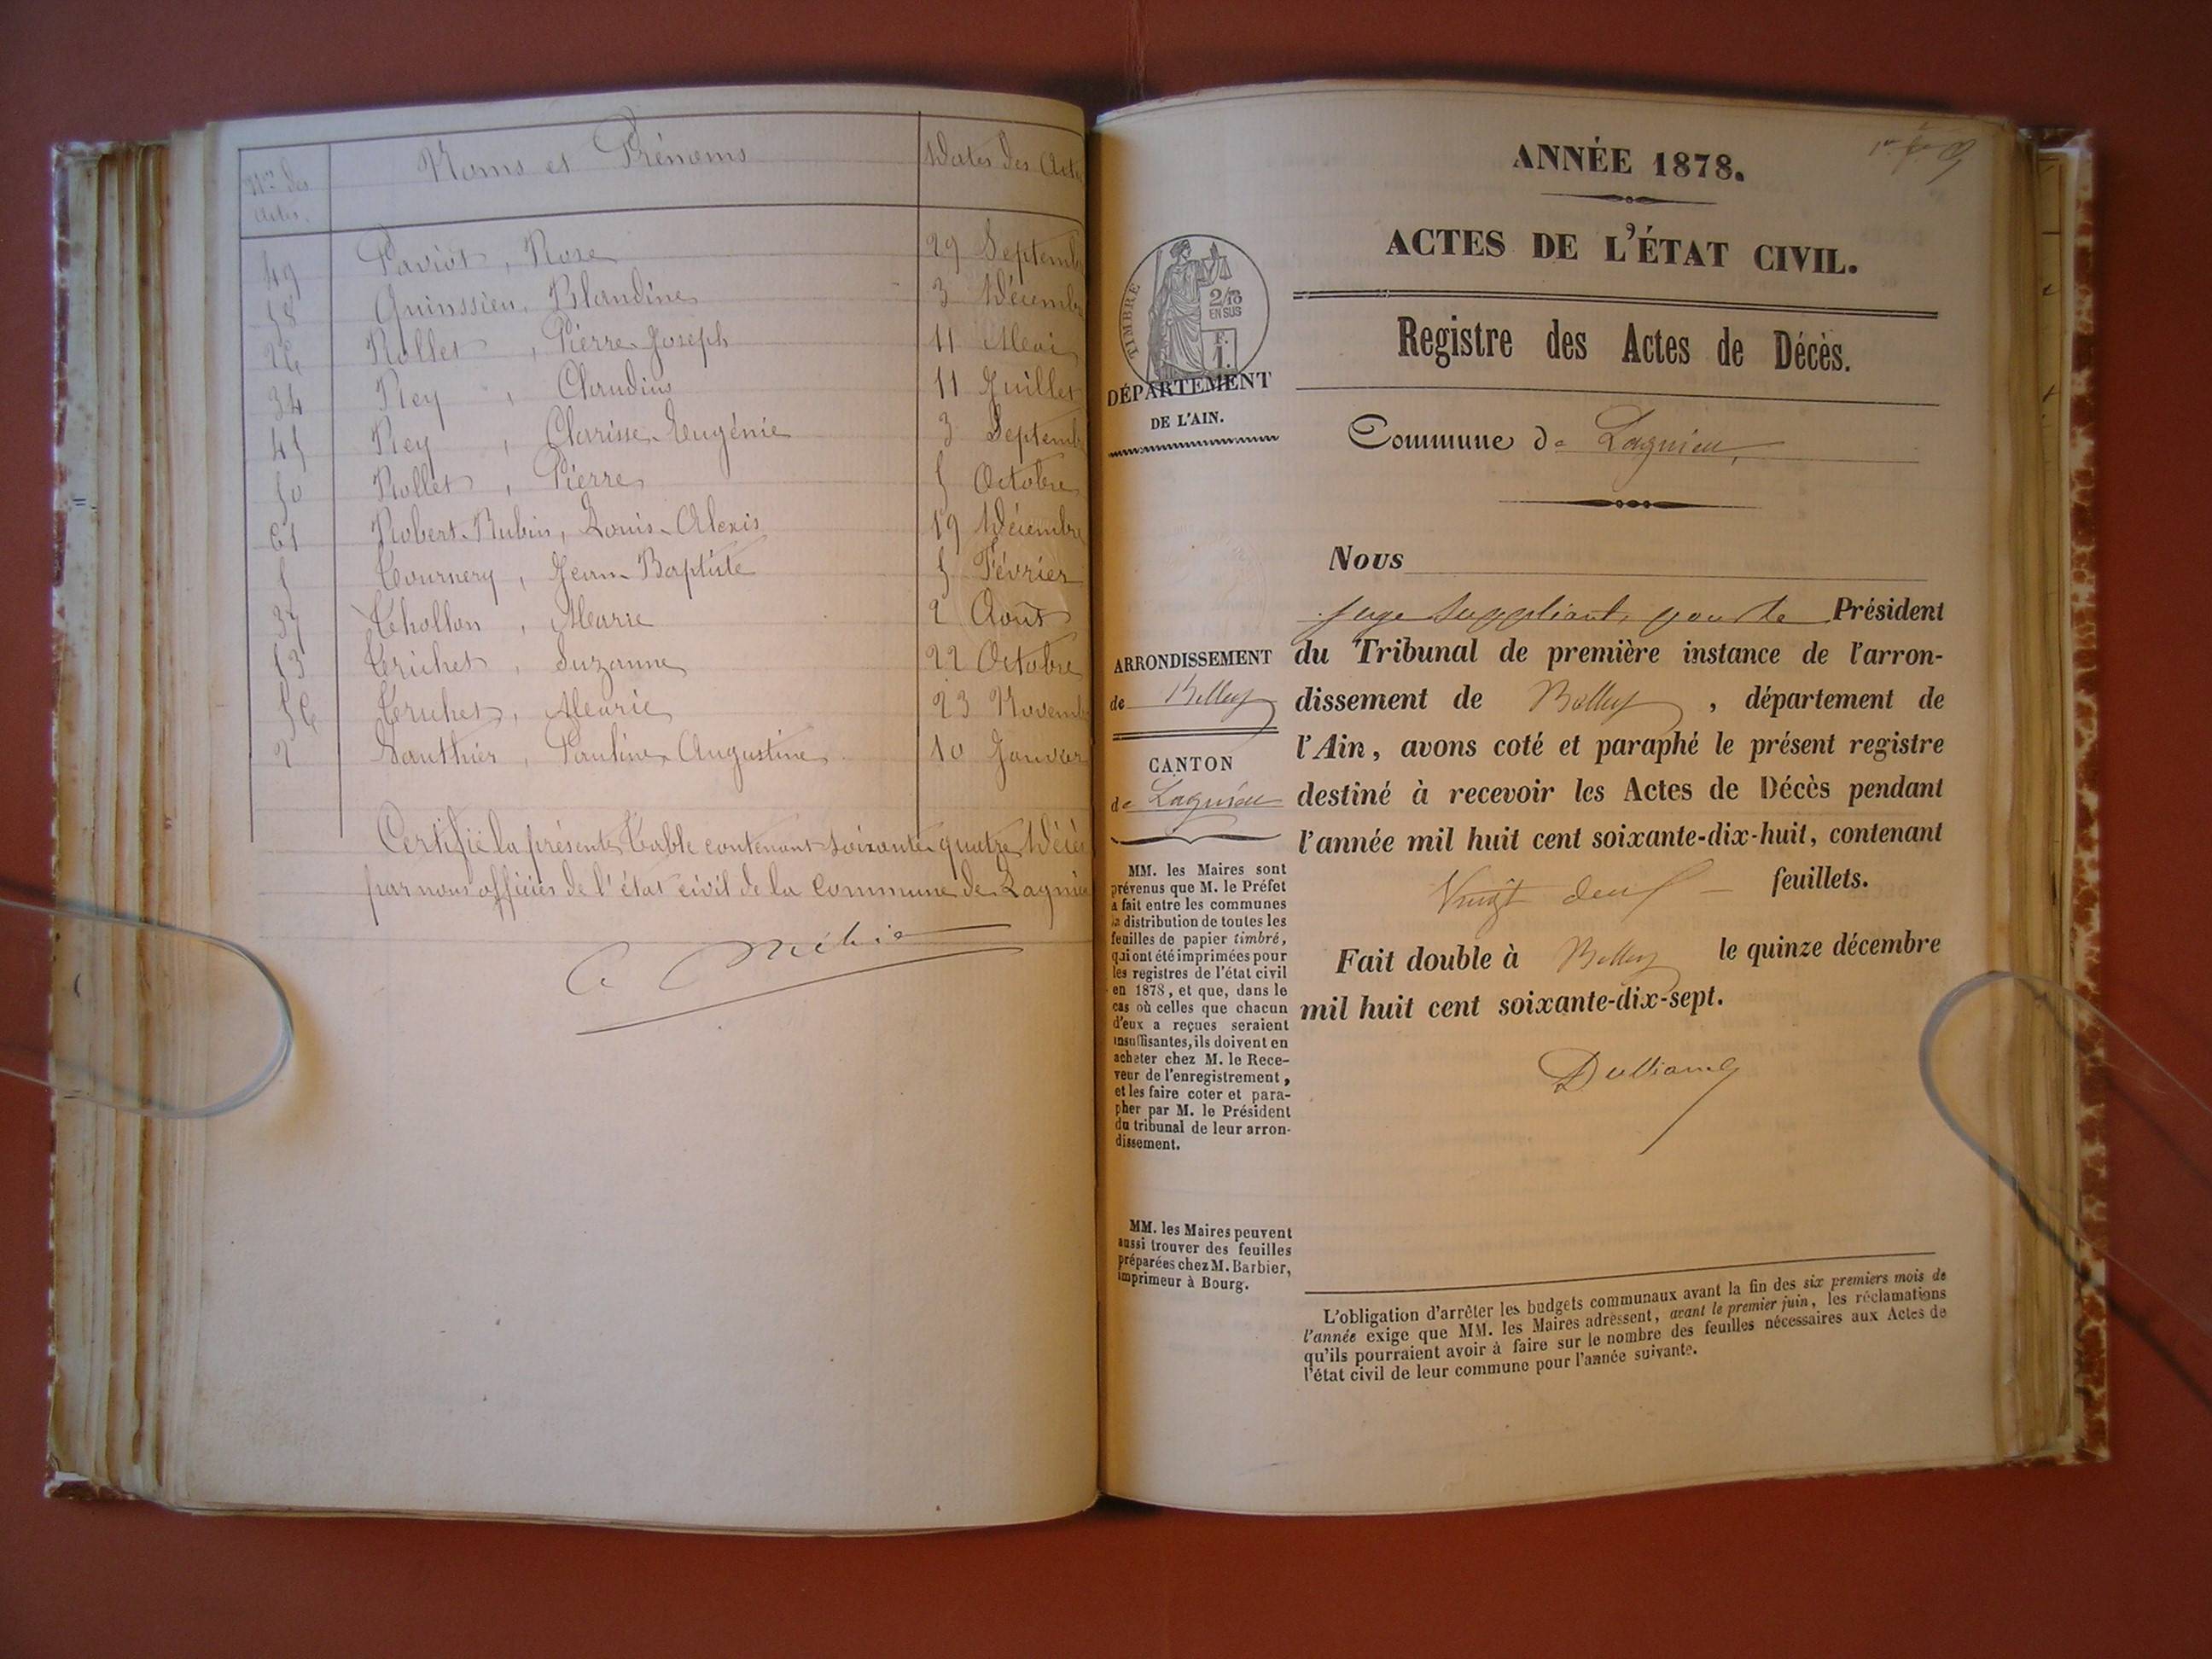 Nos des Actes.
Noms et Prénoms
Dates des Actes
49 Paviot, Rose 29 Septembre
58 Quinssieu, Blandine 3 Décembre
26 Rollet, Pierre Joseph 11 Mai
34 Rey, Claudius 11 Juillet
45 Rey, Clarisse Eugénie 3 Septemb
50 Rollet, Pierre 5 Octobre
61 Robert-Rubin, Louis-Alexis 19 Décembre
5 Tournery, Jean-Baptiste 5 Février
37 Thollon, Marie 2 Août
53 Trichet, Suzanne 22 Octobre
56 Marie 23 Novemb
2 Pauline Augustine 10 Janvier
Certifié la présente Table contenant soixante quatre Décès
par nous officier de l'état civil de la commune de Lagnieu
ANNÉE 1878.
ACTES DE L'ÉTAT CIVIL.
Registre des Actes de Décès.
Commune de Lagnieu,
TIMBRE
2/10
EN SUS
F.
1.
DÉPARTEMENT
DE L'AIN.
ARRONDISSEMENT
de Belley
CANTON
de Lagnieu
MM. les Maires sont
prévenus que M. le Préfet
a fait entre les communes
la distribution de toutes les
feuilles de papier timbré,
qui ont été imprimées pour
les registres de l'état civil
en 1878, et que, dans le
cas où celles que chacun
d'eux a reçues seraient
insuffisantes, ils doivent en
acheter chez M. le Rece-
veur de l'enregistrement,
et les faire coter et para-
pher par M. le Président
du tribunal de leur arron-
dissement.
MM. les Maires peuvent
aussi trouver des feuilles
préparées chez M. Barbier,
imprimeur à Bourg.
Nous
Juge Suppléant, pour le Président
du Tribunal de première instance de l'arron-
dissement de Belley, département de
l'Ain, avons coté et paraphé le présent registre
destiné à recevoir les Actes de Décès pendant
l'année mil huit cent soixante-dix-huit, contenant
Vingt deux feuillets.
Fait double à Belley le quinze décembre
mil huit cent soixante-dix-sept.
L'obligation d'arrêter les budgets communaux avant la fin des six premiers mois de
l'année exige que MM. les Maires adressent, avant le premier juin, les réclamations
qu'ils pourraient avoir à faire sur le nombre des feuilles nécessaires aux Actes de
l'état civil de leur commune pour l'année suivante.